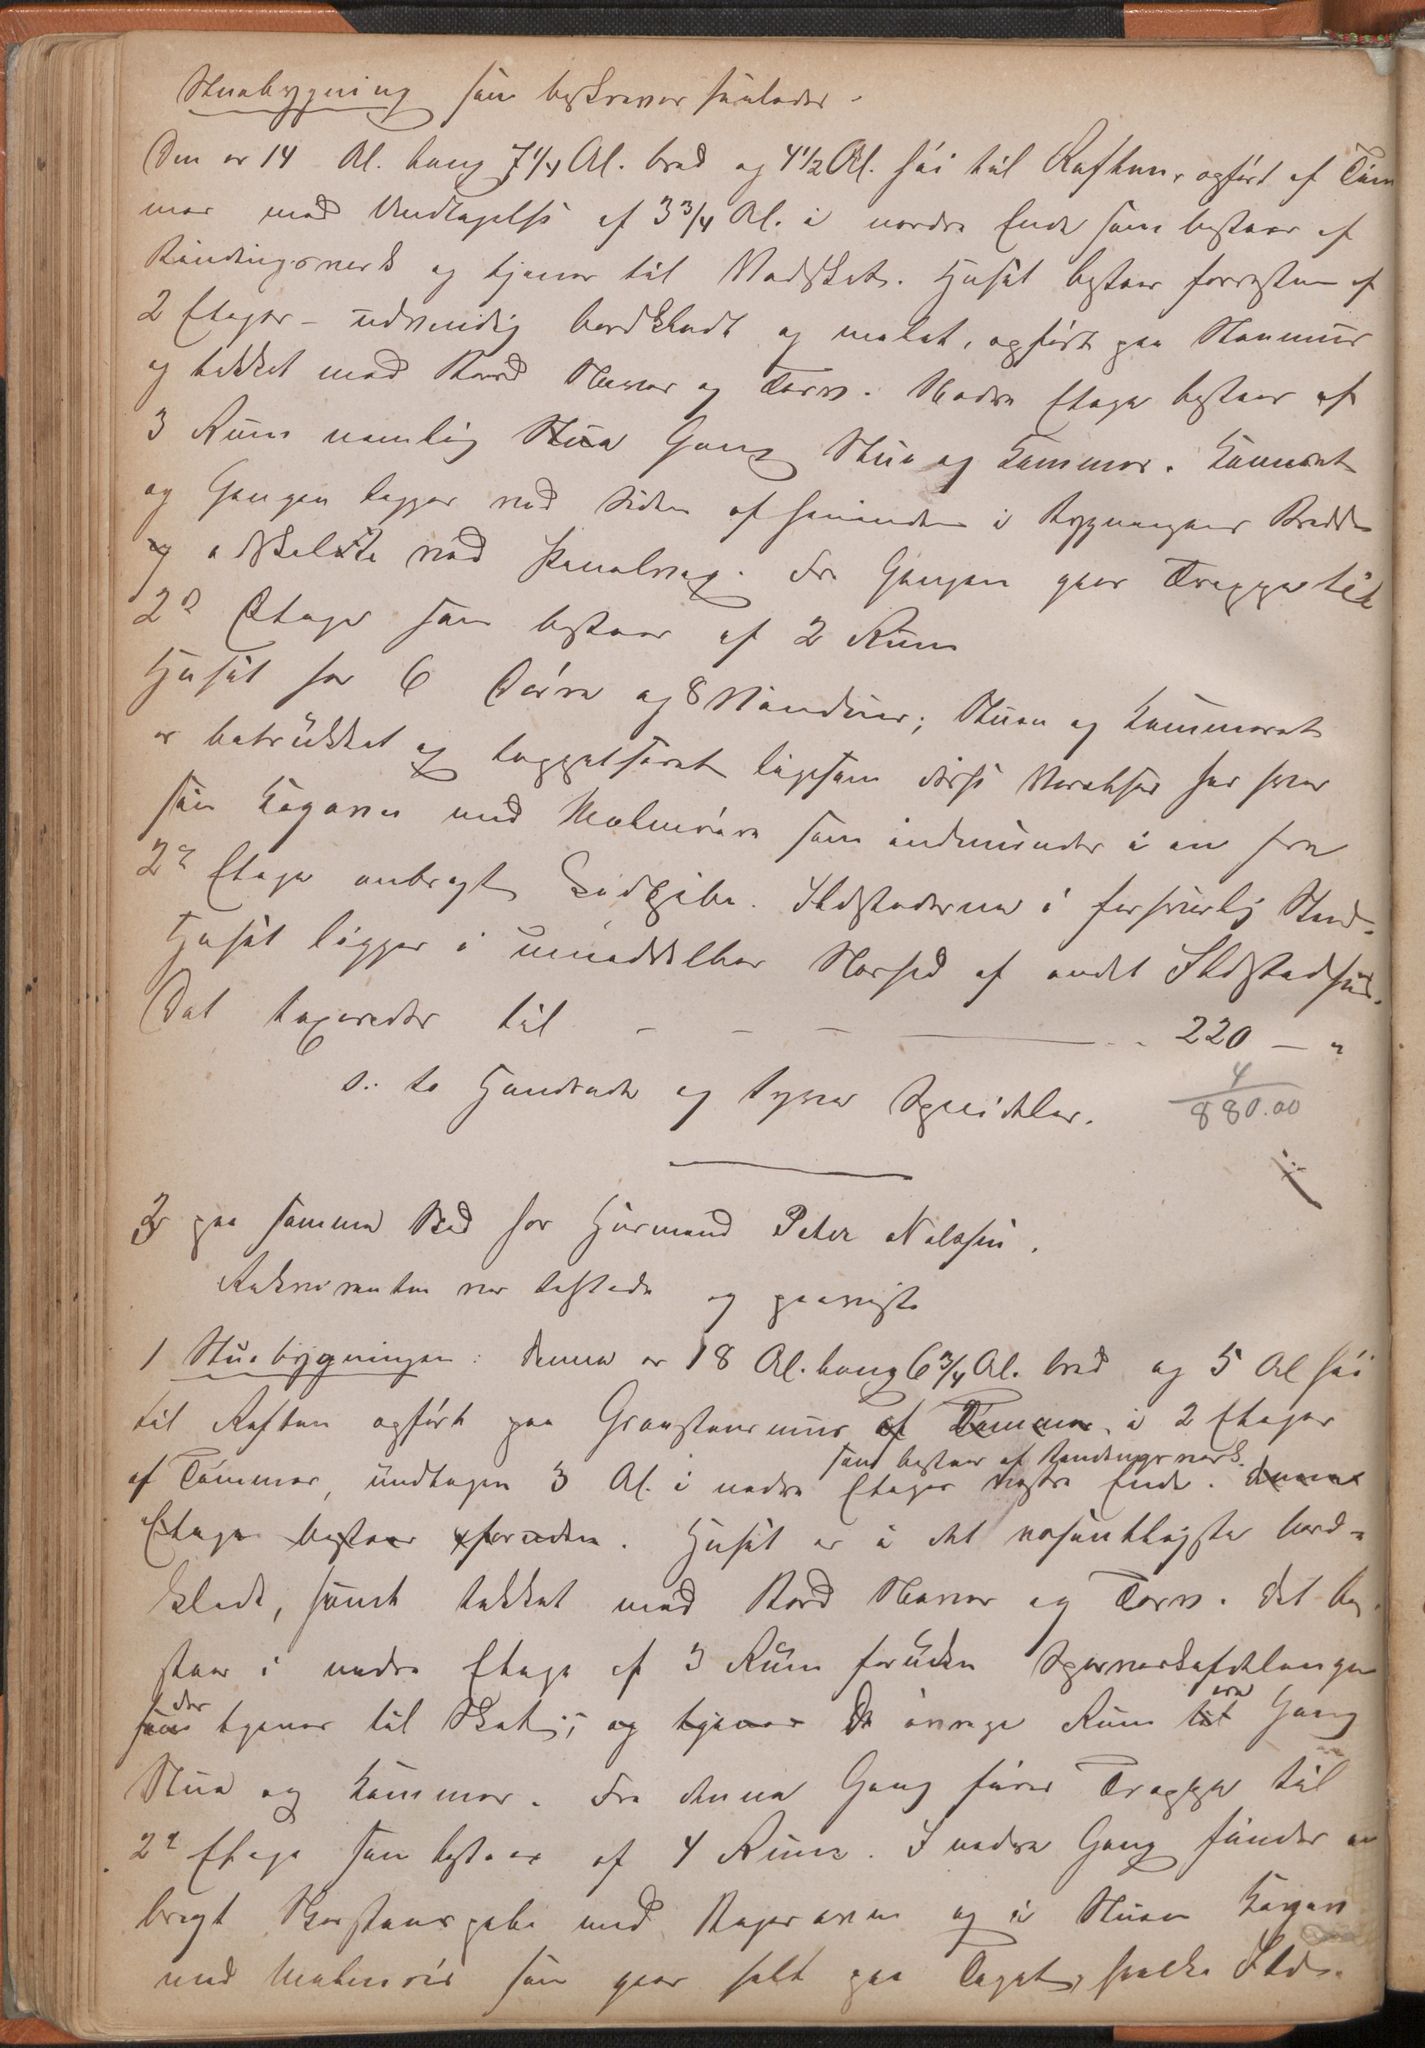 Stuebygning som beskrives saaledes.
Den er 14 Al. lang 7 1/4 Al. bred og 4 1/2 Al. høi til Raften, opført af Tøm
mer med Undtagelse af 3 3/4 Al. i nordre Ende som bestaar af
Bindingsverk og tjener til Vedsket. Huset bestaar forresten af
2 Etager – udvendig bordklædt og malet, opført paa Stenmur
og tækket med Bord Næver og Torv. Nedre Etage bestaar af
3 Rum nemlig Stue Gang Stue og Kammer. Kammeret
og Gangen ligger ved Siden af hinanden i Bygningens Bredde
og adskelte ved Panelveg. Fra Gangen gaar Trappe til
2d Etage som bestaar af 2 Rum
Huset har 6 Døre og 8 Vinduer; Stuen og Kammeret
er betrukket og tappetseret ligesom disse Værelser har hver
sin Kogovn med Malmrøre som indmunder i en fra
2d Etage anbragt Pibe. Ildstederne i forsvarlig Stand.
Huset ligger i umiddelbar Nærhed af andet Ildstedhus.
Det taxeredes til – – – – 220 – "
o: to Hundrede og tyve Speciedaler. 4
880.00
3 paa samme Sted for Husmand Peter Nilssen.
Rekvirenten var tilstede og paaviste
1 Stuebygningen: denne er 18 Al. lang 6 3/4 Al. bred og 5 Al høi
til Raften opført paa Graastensmur af Tømmer i 2 Etager
som bestaar af Bindingsverk.
af Tømmer, undtagen 3 Al. i nedre Etages vestre Ende. denne
Etage bestaar foruden. Huset er i det væsentligste bord-
klædt, samt tækket med Bord Næver og Torv. det be-
staar i nedre Etage af 3 Rum foruden Sperverkafdelingen
som der tjener til Sket; og tjener de øvrige Rum til ere Gang
Stue og Kammer. Fra denne Gang fører Trappe til
2d Etage som bestaar af 4 Rum. I nedre Gang findes an
bragt Skorstenspibe med Bagerovn og i Stuen Kogovn
med Malmrør som gaar helt paa Taget, hvilke Ild-